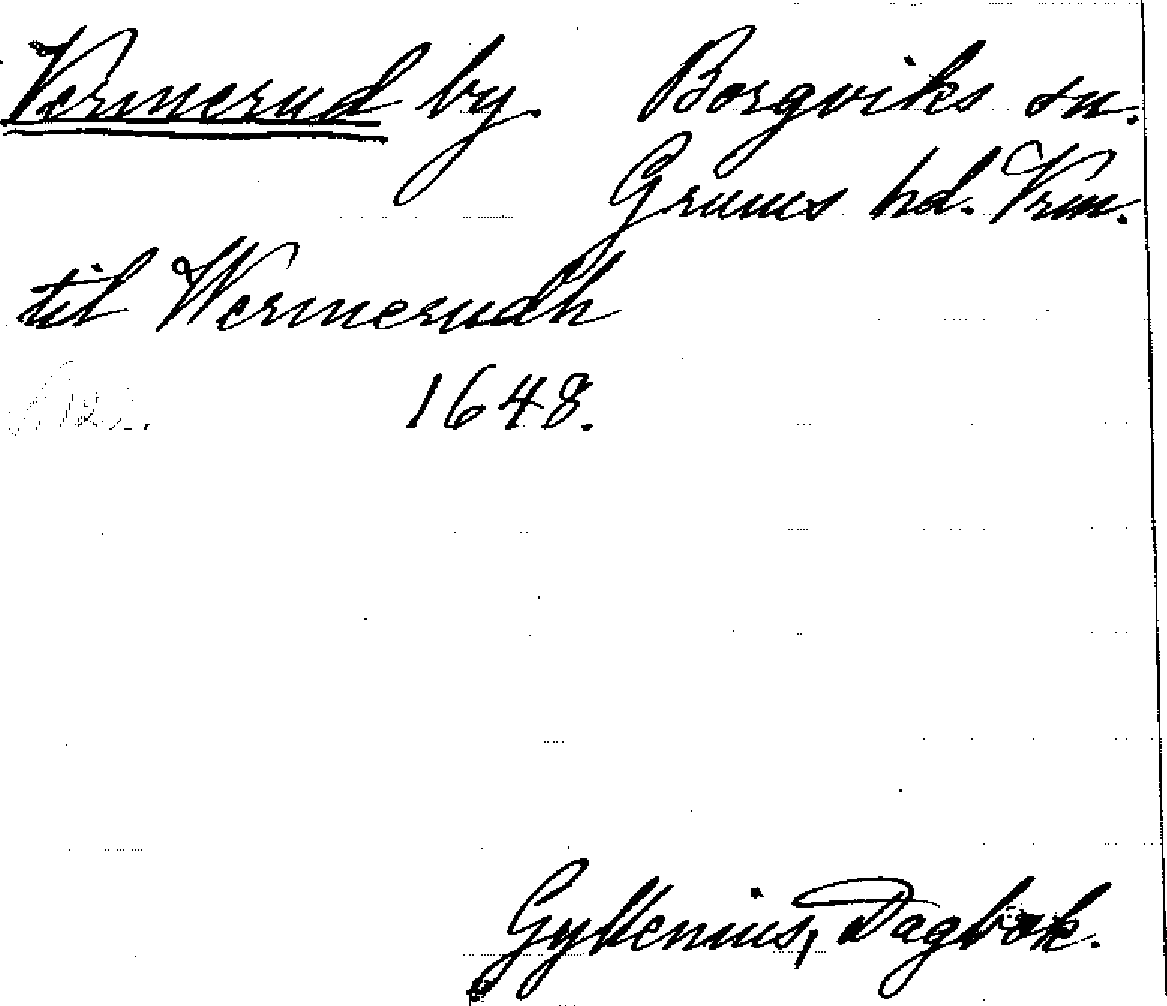 Vermerud by. Borgviks sn.
Grums hd. Vrm.
til Wermerudh
1648.
Gyllenius, Dagbok.